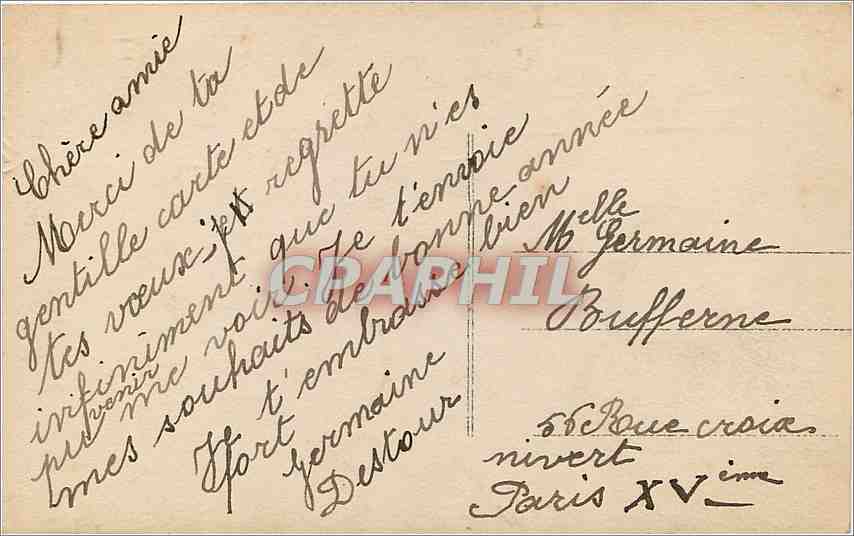 Chère amie
Merci de ta
gentille carte et de
tes vœux, je regrette
infiniment que tu n'es
pu venir me voir. Je t'envoie
mes souhaits de bonne année
Je t'embrasse bien
fort
Germaine
Destour
Melle Germaine
Bufferne
56 Rue croix
nivert
Paris XVième
CPAPHIL